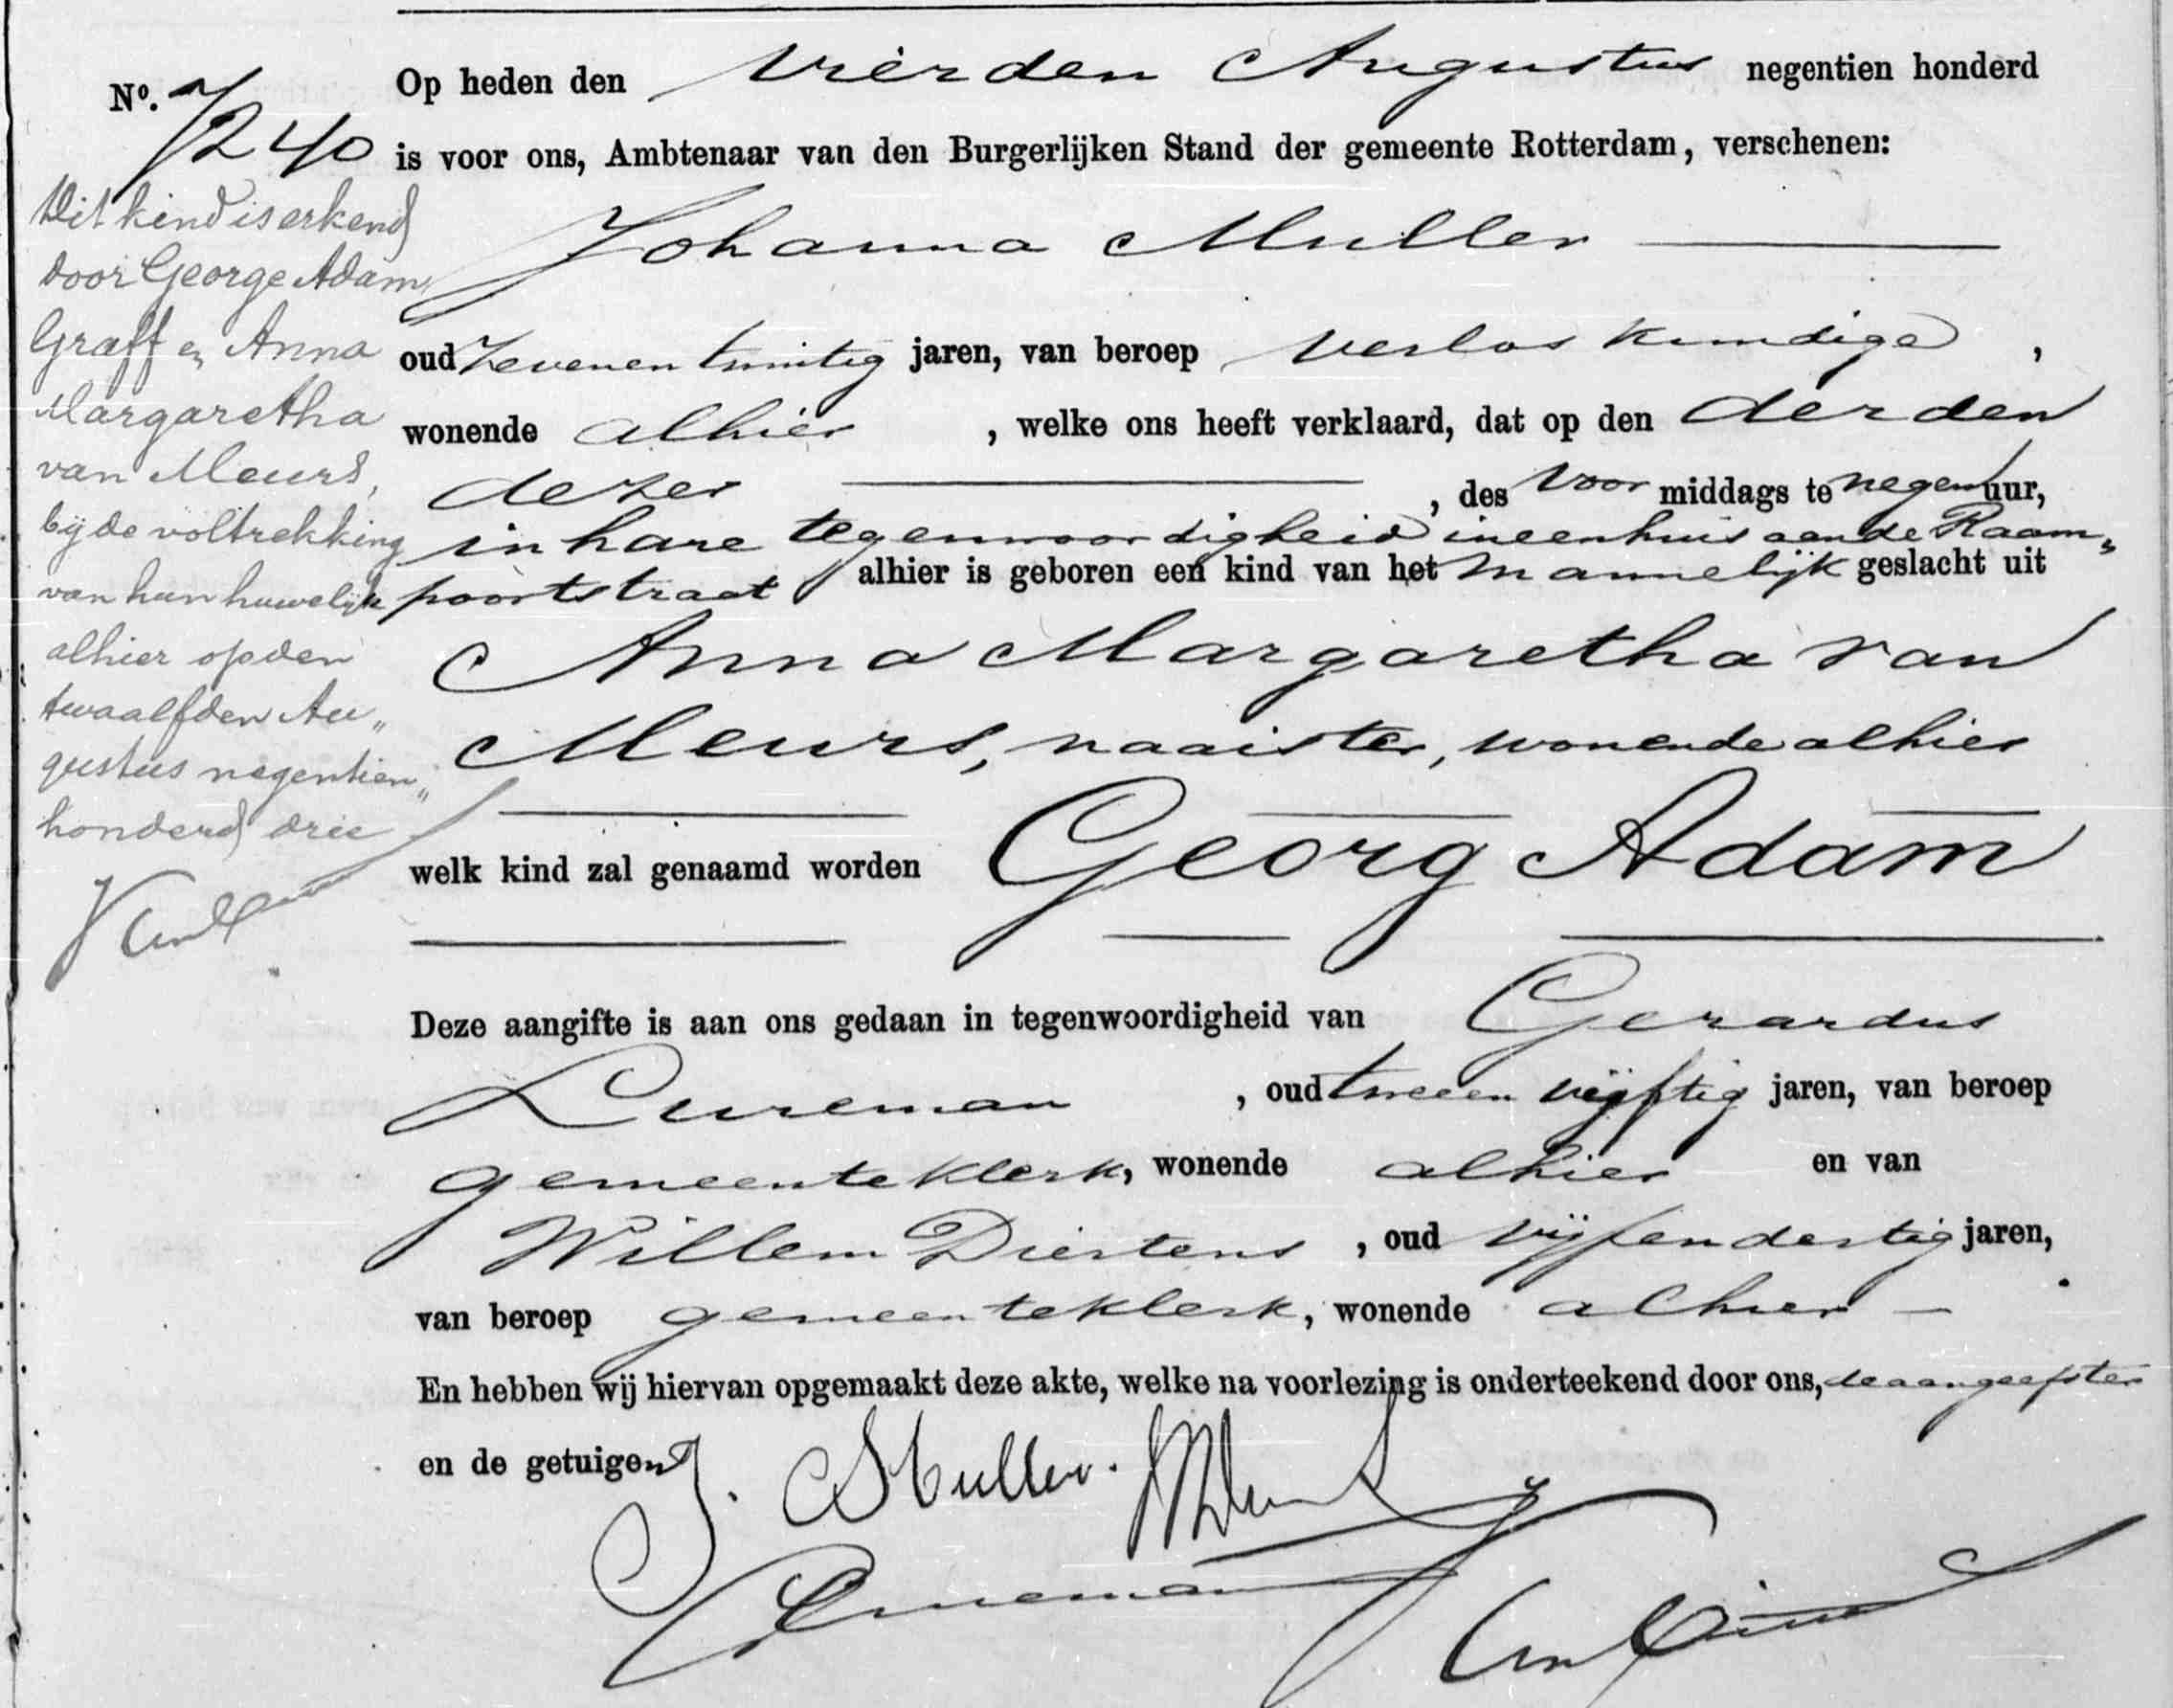 Nº. 7240
Dit kind is erkend
door George Adam
Graff en Anna
Margaretha
van Meurs,
bij de voltrekking
van hun huwelijk
alhier op den
twaalfden Au„
gustus negentien„
honderd drie
Op heden den vierden Augustus negentien honderd
is voor ons, Ambtenaar van den Burgerlijken Stand der gemeente Rotterdam, verschenen:
Johanna Muller
oud zevenentwintig jaren, van beroep verloskundige,
wonende alhier, welke ons heeft verklaard, dat op den derden
dezer, des voor middags te negen uur,
in hare tegenwoordigheid in een huis aan de Raam„
poortstraat alhier is geboren een kind van het mannelijk geslacht uit
Anna Margaretha van
Meurs, naaister, wonende alhier
welk kind zal genaamd worden Georg Adam
Deze aangifte is aan ons gedaan in tegenwoordigheid van Gerardus
Lureman, oud tweeenvijftig jaren, van beroep
gemeenteklerk, wonende alhier en van
Willem Diertens, oud vijfendertig jaren,
van beroep gemeenteklerk, wonende alhier
En hebben wij hiervan opgemaakt deze akte, welke na voorlezing is onderteekend door ons, de aangeefster
en de getuigen
J. Muller.
Lureman